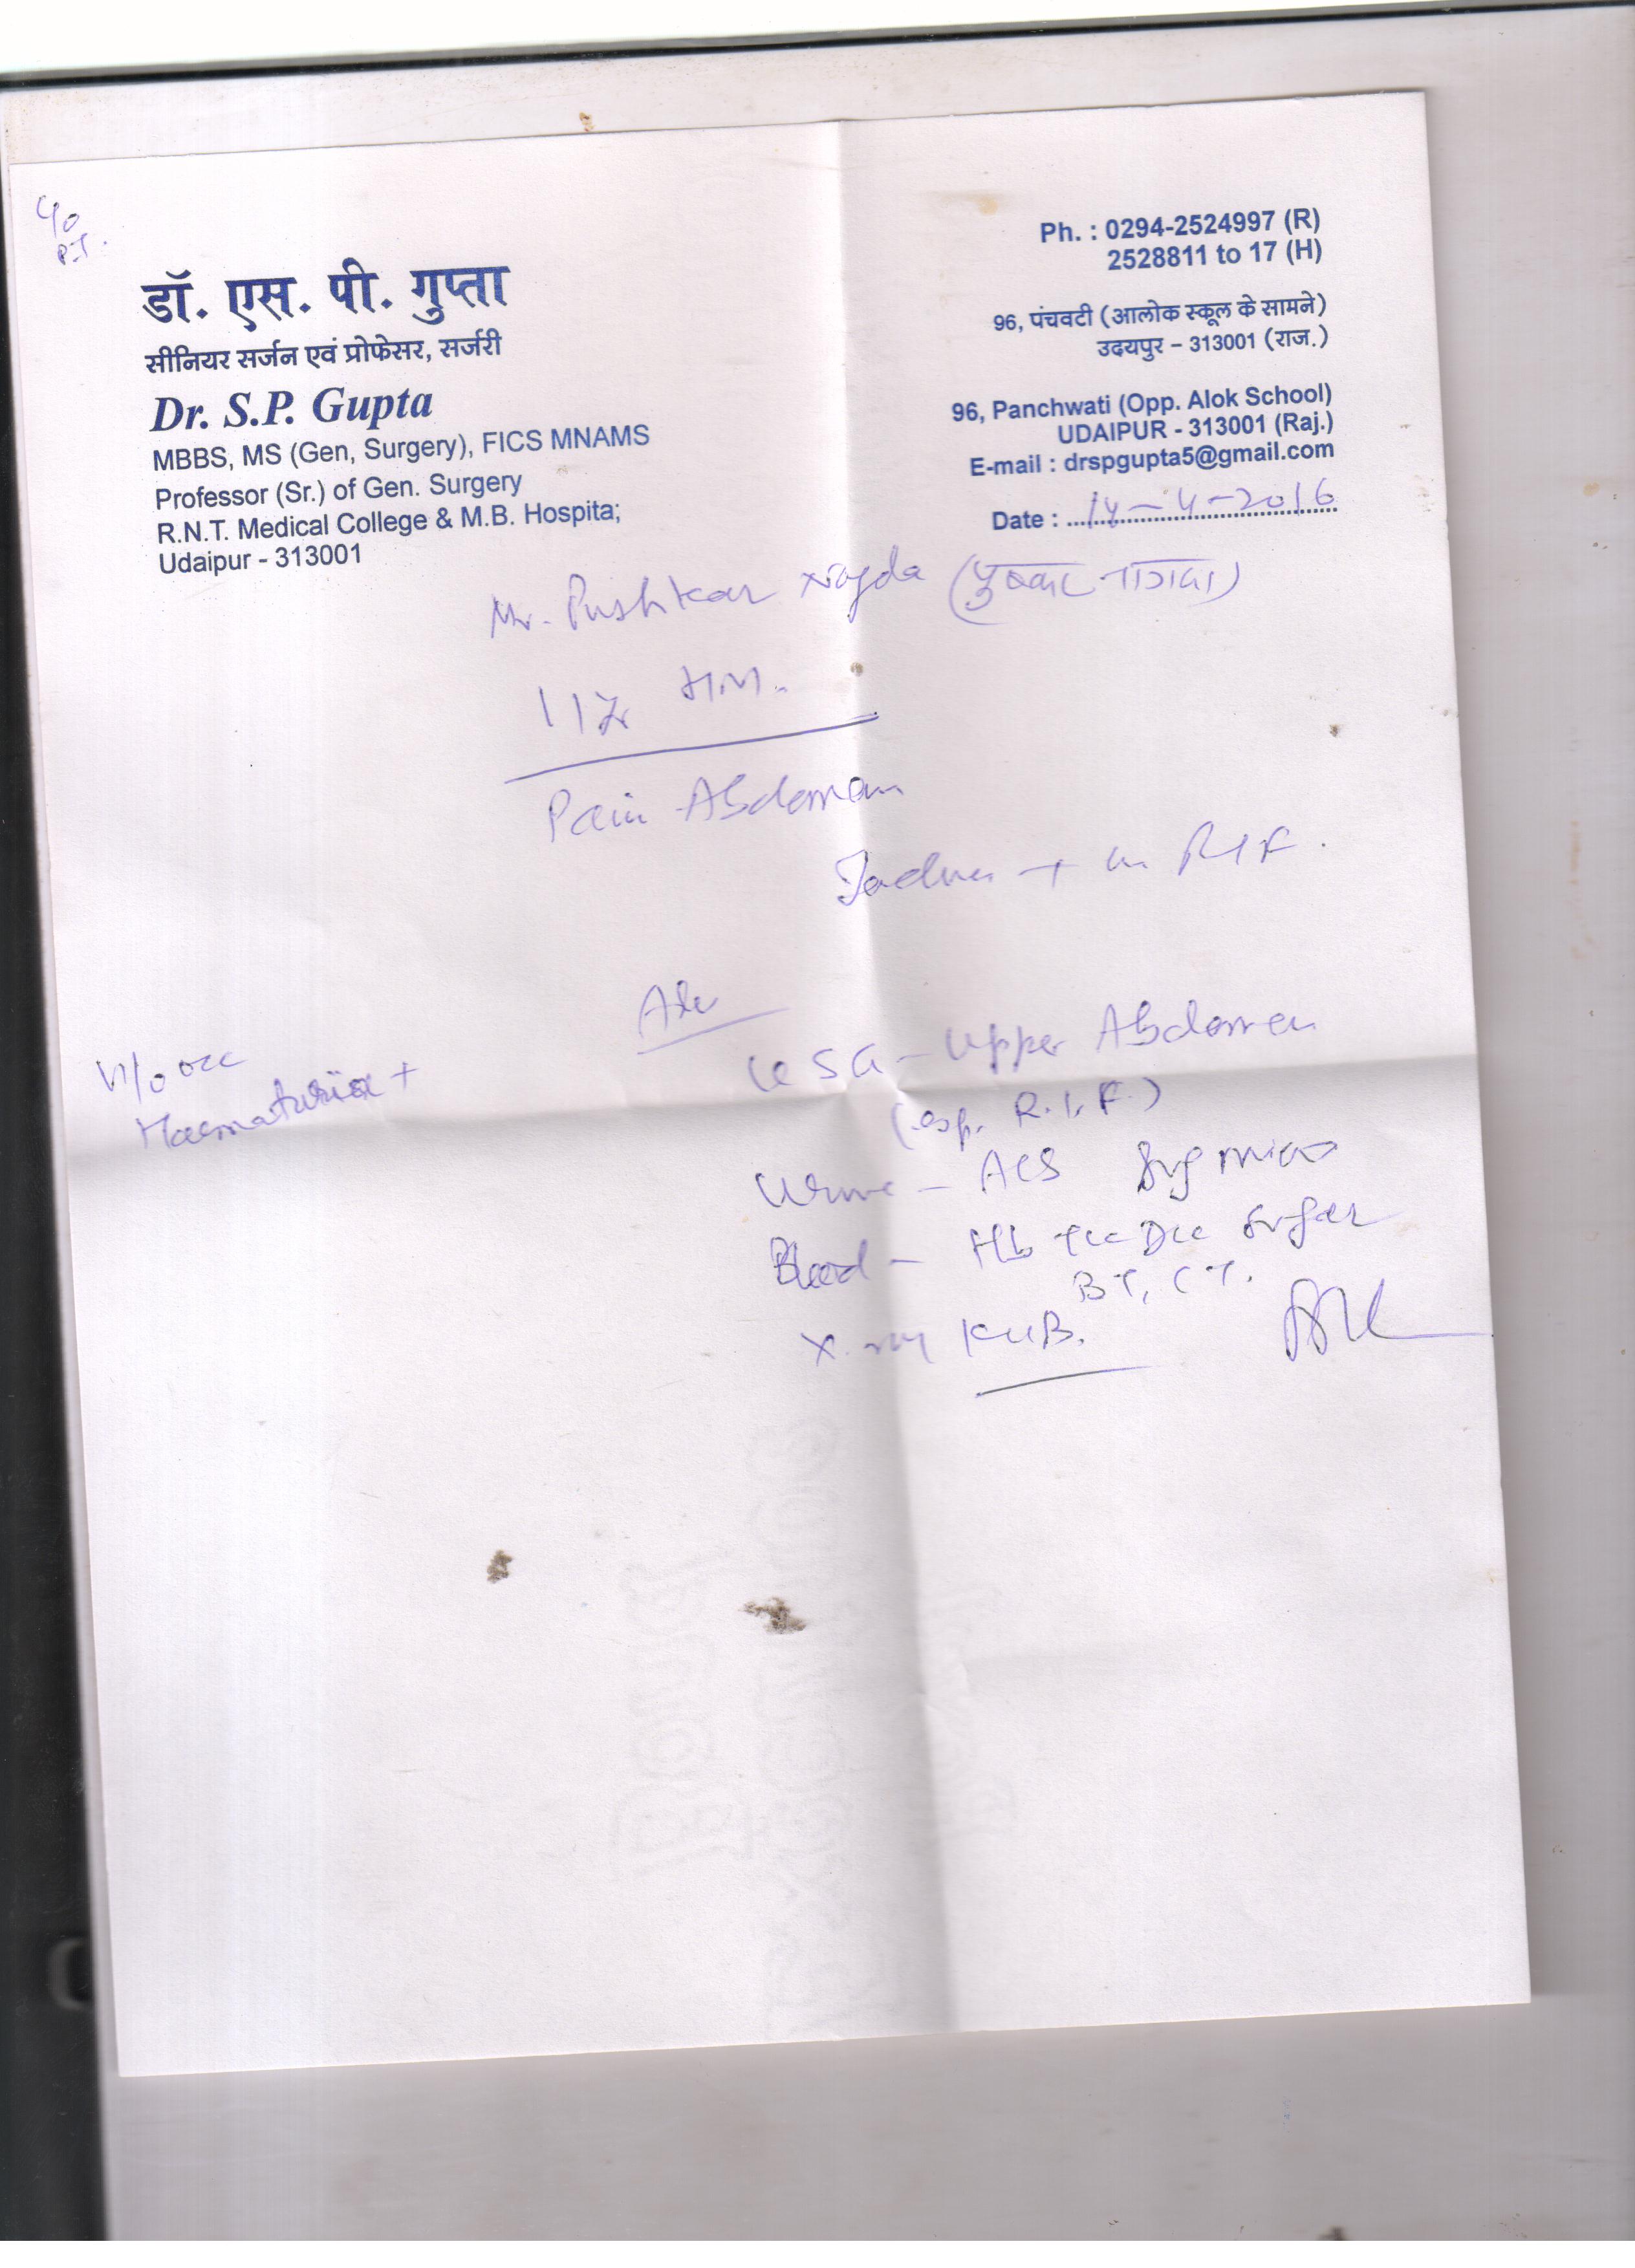 डॉ. एस. पी. गुप्ता
सीनियर सर्जन एवं प्रोफेसर, सर्जरी
Dr. S.P. Gupta
MBBS, MS (Gen, Surgery), FICS MNAMS
Professor (Sr.) of Gen. Surgery
R.N.T. Medical College & M.B. Hospita;
Udaipur - 313001
Ph. : 0294-2524997 (R)
2528811 to 17 (H)
96, पंचवटी (आलोक स्कूल के सामने)
उदयपुर – 313001 (राज.)
96, Panchwati (Opp. Alok School)
UDAIPUR - 313001 (Raj.)
E-mail : drspgupta5@gmail.com
Date : 14-4-2016
Mr. Pushkar Nagda (पुष्कर नागदा)
Pain Abdomen
+ in RIF.
Adv
H/o occ
Haematuria +
USG - Upper Abdomen
(esp. R.I.F.)
Urine - Alb Sug micro
Blood - Hb TLC DLC Sugar
BT, CT.
X-ray KUB.